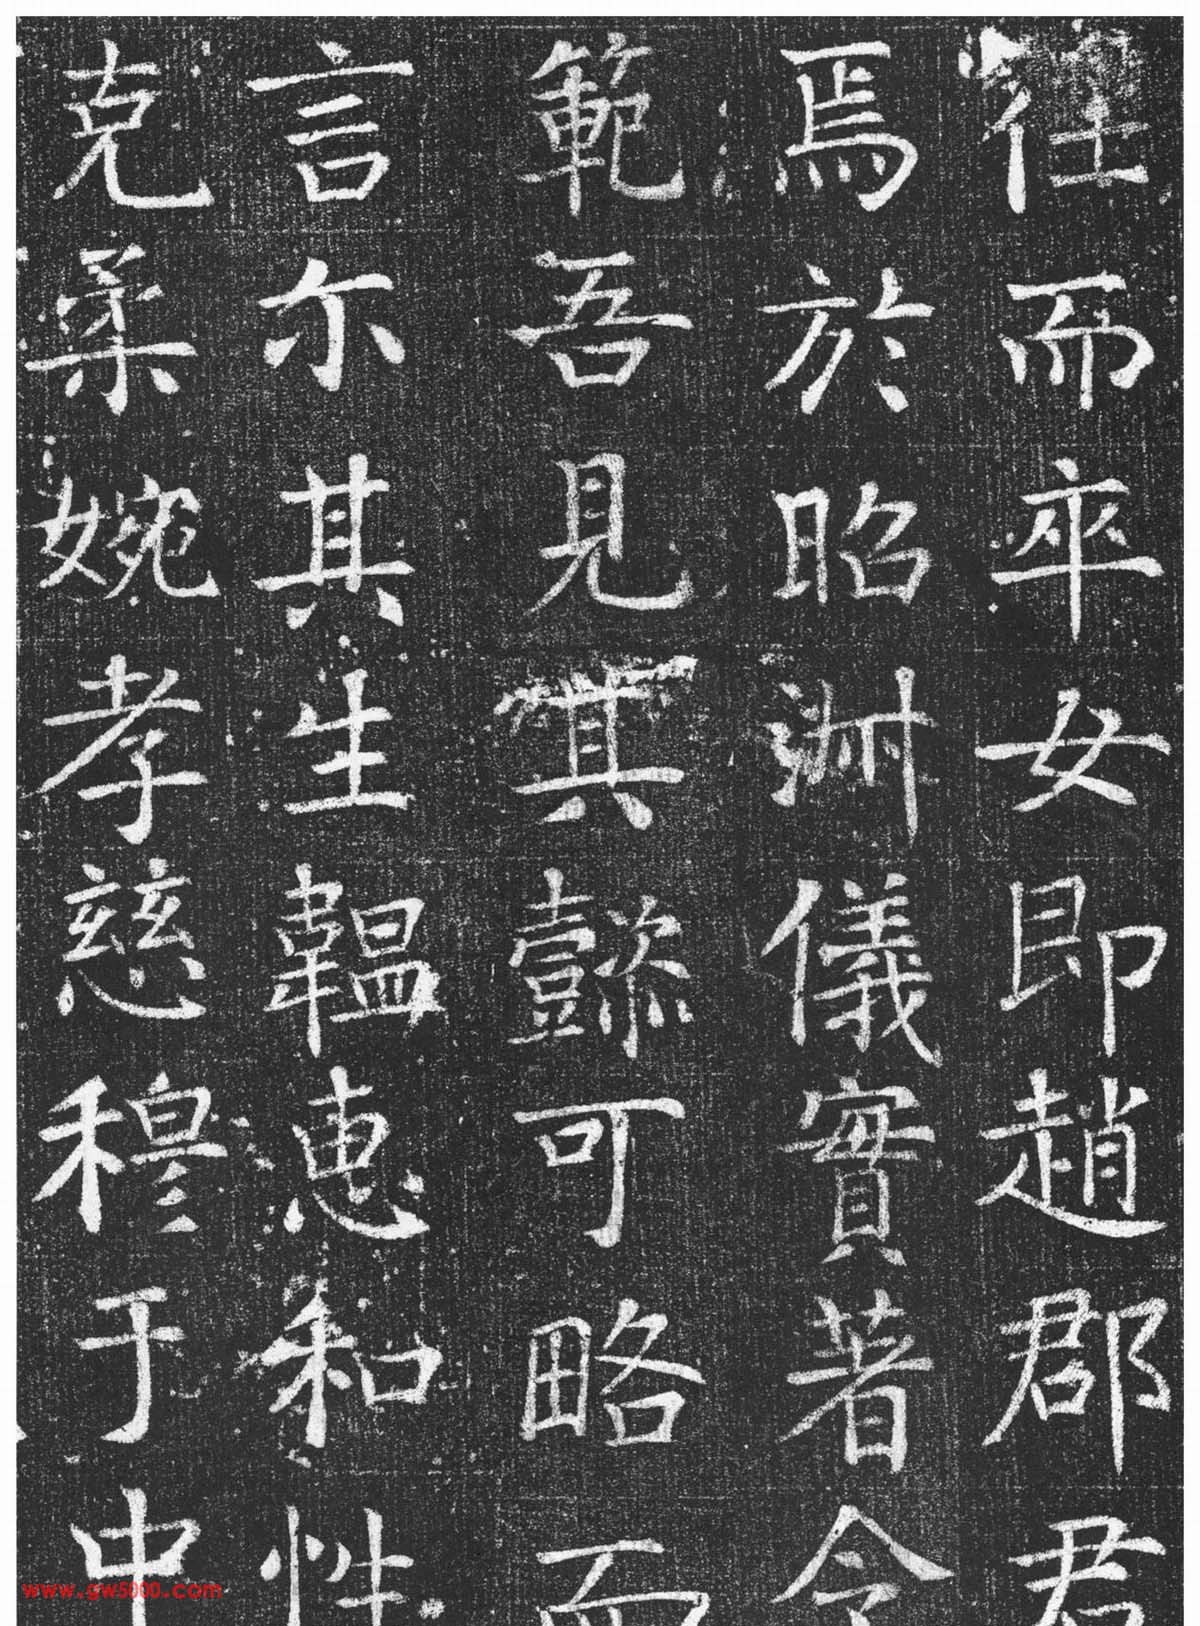 任而卒女即趙郡君
焉於昭淋儀實著令
範吾見其懿可略而
言尓其生韞惠和性
克柔婉孝慈穆于中
www.gw5000.com